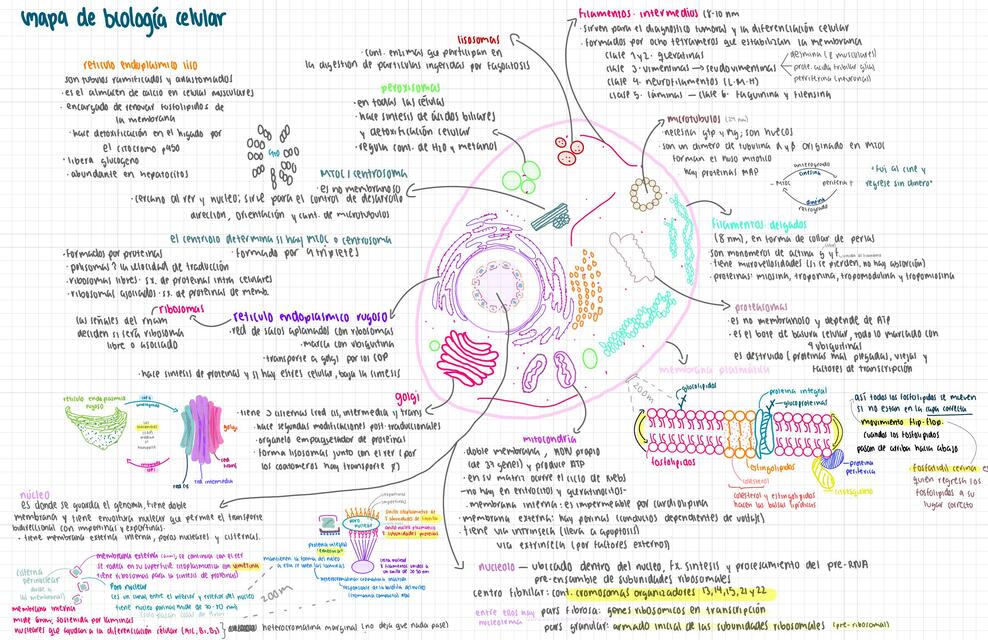 mapa de biología celular
retículo endoplasmico liso
son tubulos ramificados y anastomosados
· es el almacen de calcio en celulas musculares
· encargado de renovar fosfolipidos de
la membrana
· hace detoxificación en el higado por
el citocromo p450
· libera glucogeno
· abundante en hepatocitos
lisosomas
· cont. enzimas que participan en
la digestion de particulas ingeridas por fagocitosis
peroxisomas
· en todas las células
· hace síntesis de ácidos biliares
y detoxificación celular
· regula cont. de H2O y metanol
MTOC | centrosoma
· es no membranoso
· cercano al rer y nucleo; sirve para el control de desarrollo
dirección, orientación y cant. de microtubulos
el centriolo determina si hay MTOC o centrosoma
· formado por 9 tripletes
filamentos intermedios (8-10 nm)
· sirven para el diagnostico tumoral y la diferenciación celular
· formados por ocho tetrameros que estabilizan la membrana
clase 1 y 2· queratinas
clase 3 · vimentinas → seudovimentinas
desmina (f musculares)
perifenina (neuronal)
clase 4· neurofilamentos (L-M-H)
clase 5· láminas — clase 6· faquinina y filensina
microtubulos
· necesitan gtp y Mg; son huecos
· son un dimero de tubulina α y β originado en MTOC
forman el huso mitotico
hay proteinas MAP
anterogrado
cinesina
- MTOC
periferia +
dineina
retrogrado
"fui al cine y
regrese sin dinero"
filamentos delgados
(8 nm), en forma de collar de perlas
son monomeros de actina G y F
· tiene microvellosidades (si se pierden, no hay absorción)
· proteinas: miosina, troponina, tropomodulina y tropomiosina
proteosomas
· es no membranoso y depende de ATP
· es el bote de basura celular, todo lo marcado con
4 ubiquitinas
es destruido (proteinas mal plegadas, viejas y
factores de transcripción
· formados por proteinas
· polisomas ↑ la velocidad de traducción
· ribosomas libres· sx. de proteinas intra celulares
· ribosomas asociados· sx. de proteinas de memb.
ribosomas
las señales del rnam
deciden si sera ribosoma
libre o asociado
retículo endoplasmico rugoso
· red de sacos aplanados con ribosomas
· marca con ubiquitina
· transporte a golgi por los COP
· hace sintesis de proteinas y si hay estres celular, baja la sintesis
golgi
· tiene 3 cisternas (red cis, intermedia y trans)
· hace segundas modificaciones post-traduccionales
· organelo empaquetador de proteinas
· forma lisosomas junto con el rer (por
los coatomeros hay transporte)
retículo endoplasmico
rugoso
golgi
red trans
red cis
red intermedia
mitocondria
· doble membrana, ADN propio
(de 37 genes) y produce ATP
· en su matriz ocurre el ciclo de Krebs
· no hay en eritrocitos y queratinocitos·
· membrana interna: es impermeable por cardiolipina
· membrana externa: hay porinas (conductos dependientes de voltaje)
· tiene vía intrinseca (lleva a apoptosis)
vía extrinseca (por factores externos)
membrana plasmática
glucolipidos
proteina integral
glucoproteinas
fosfolipidos
esfingolipidos
colesterol
colesterol y esfingolipidos
hacen las balsas lipidicas
proteina
periferica
así todos los fosfolipidos se mueven
si no estan en la capa correcta
movimiento flip-flop.
cuando los fosfolipidos
pasan de arriba hacia abajo
fosfatidil cerina es
quien regresa los
fosfolipidos a su
lugar correcto
núcleo
es donde se guarda el genoma, tiene doble
membrana y tiene envoltura nuclear que permite el transporte
bidireccional con importinas y exportinas·
· tiene membrana externa interna, poros nucleares y cisternas.
membrana externa, se continua con el rer
se rodea en su superficie citoplasmatica con vimetina
tiene ribosomas para la sintesis de proteinas
cisterna
perinuclear
Poro nuclear
poro
nuclear
membrana interna
mide 6nm, sostenida por laminas
nucleares que ayudan a la diferenciación celular (A|C, B1, B2)
heterocromatina marginal (no deja que nada pase)
nucleolo — ubicado dentro del nucleo, fx. sintesis y procesamiento del pre-RNA
pre-ensamble de subunidades ribosomales
centro fibrilar· cont. cromosomas organizadores 13, 14, 15, 21 y 22
entre ellos hay
nucleolema
pars fibrosa: genes ribosomicos en transcripción
pars granular: armado inicial de las subunidades ribosomales (pre-ribosomal)